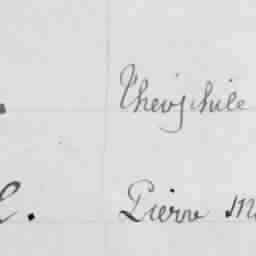 Théophile
E. Pierre M